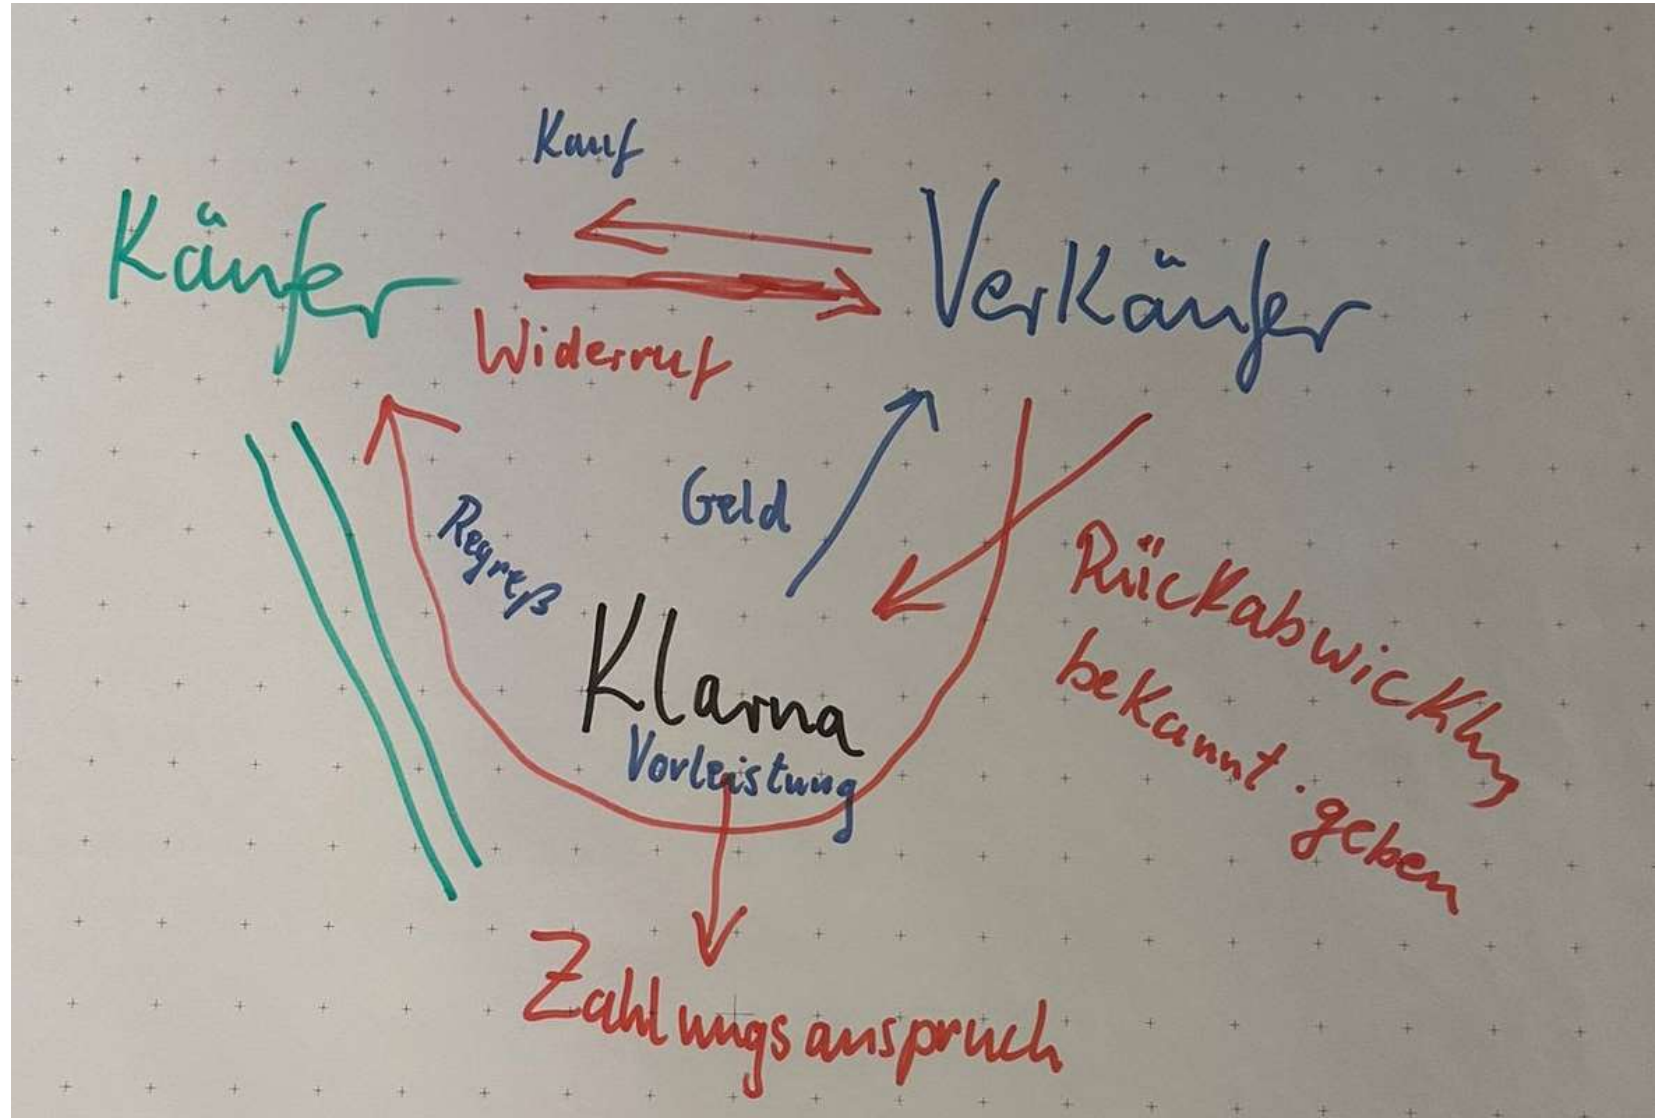 Kauf
Käufer
Verkäufer
Widerruf
Geld
Regreß
Klarna
Vorleistung
Rückabwicklung
bekannt geben
Zahlungsanspruch